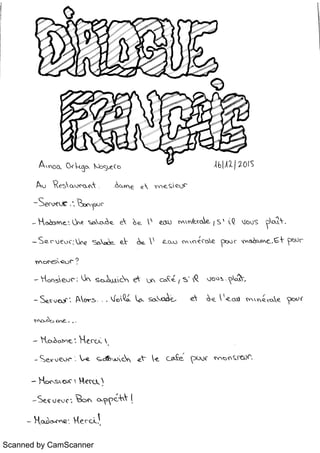 DIALOGUE
FRANÇAIS
Ainoa Ortega Noguero 16/12/2015
Au Restaurant. dame et mesieur
- Serveur : Bonjour
- Madame: Une salade et de l' eau minérale, s' il vous plaît.
- Serveur: Une salade et de l' eau minérale pour madame. Et pour
monsieur?
- Monsieur: Un sadwich et un café, s' il vous plaît.
- Serveur: Alors... Voilà la salade et de l'eau minérale pour
madame...
- Madame: Merci!
- Serveur: Le sadwich et le café pour monsieur.
- Monsieur: Merci!
- Serveur: Bon appétit!
- Madame: Merci!
Scanned by CamScanner